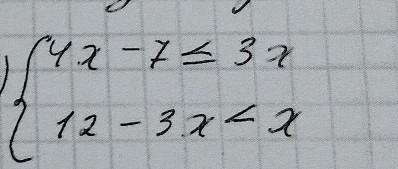 4x - 7 ≤ 3x
12 - 3x < x